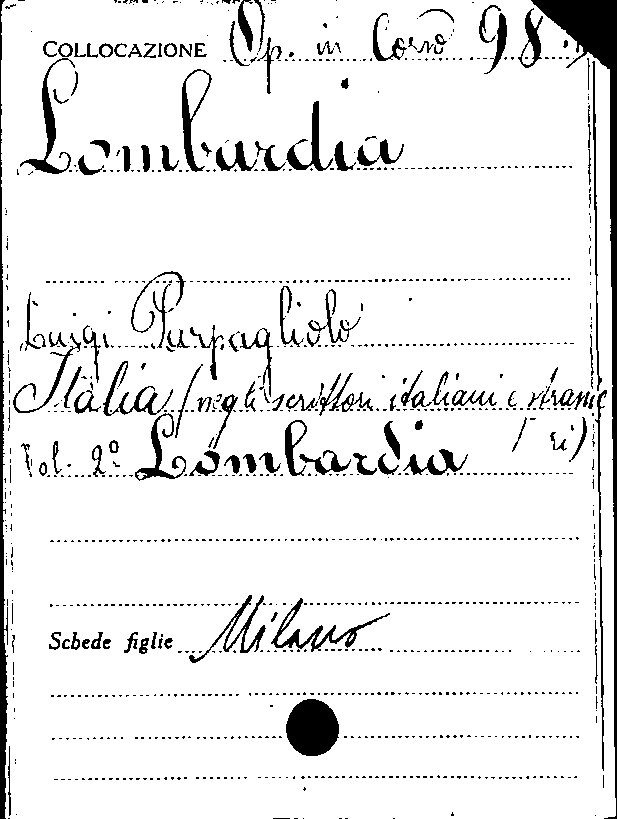 COLLOCAZIONE Op. in Corso 98
Lombardia
Luigi Parpagliolo
Italia (negli scrittori italiani e stranie
ri)
Vol. 2º Lombardia
Schede figlie Milano